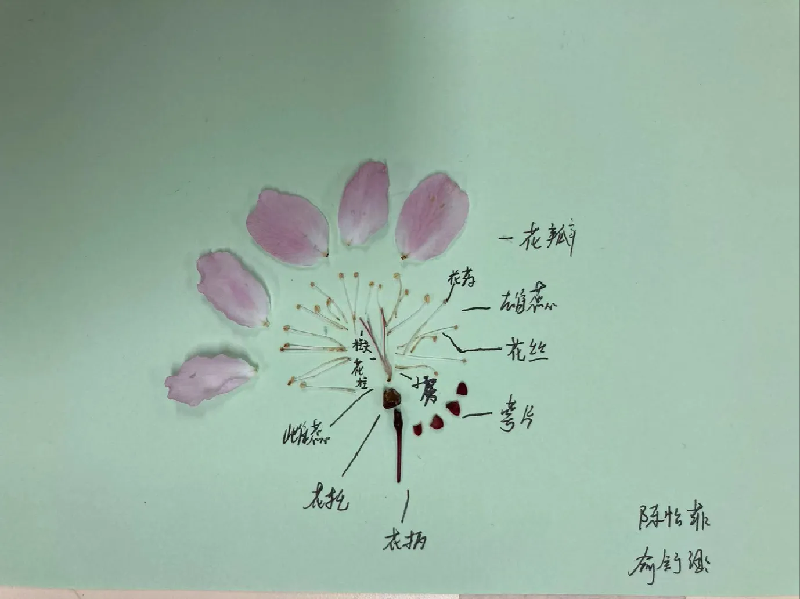 花瓣
花药
雄蕊
花丝
柱头
花柱
子房
萼片
雌蕊
花托
花柄
陈怡菲